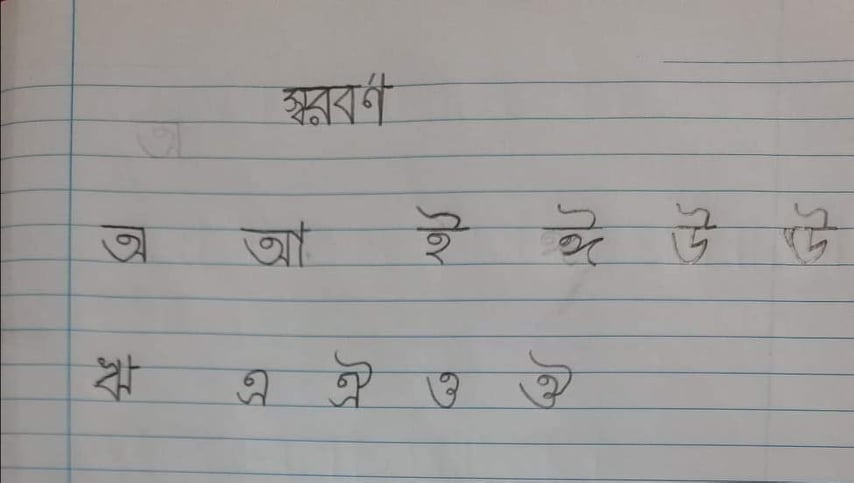 স্বরবর্ণ
অ আ ই ঈ উ ঊ
ঋ এ ঐ ও ঔ